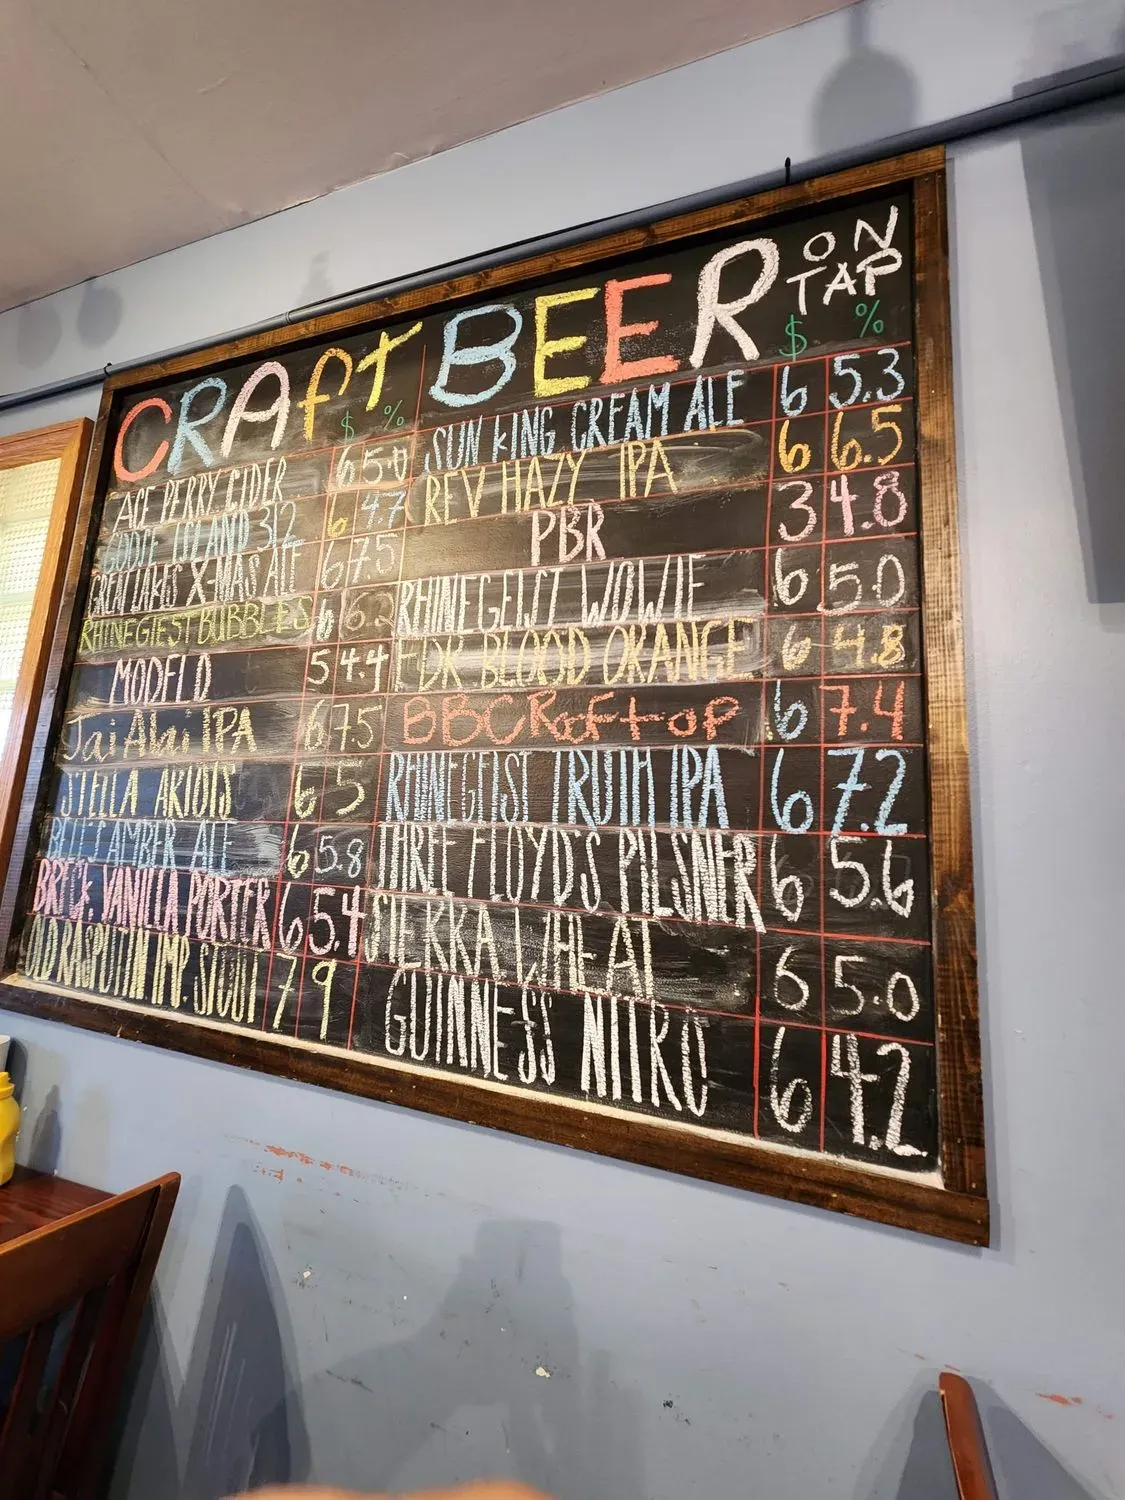 CRAft BEER ON TAP
$ %
ACE PERRY CIDER 6 5.0
GOOSE ISLAND 312 6 4.7
GREAT LAKES X-MAS ALE 6 7.5
RHINEGIEST BUBBLES 6 6.2
MODELO 5 4.4
Jai Alai IPA 6 7.5
STELLA ARTOIS 6 5
BELL'S AMBER ALE 6 5.8
BRECK. VANILLA PORTER 6 5.4
OLD RASPUTIN IMP. STOUT 7 9
$ %
SUN KING CREAM ALE 6 5.3
REV HAZY IPA 6 6.5
PBR 3 4.8
RHINEGEIST WOWIE 6 5.0
BLOOD ORANGE 6 4.8
BBC Rooftop 6 7.4
RHINEGEIST TRUTH IPA 6 7.2
THREE FLOYD'S PILSNER 6 5.6
SIERRA WHEAT 6 5.0
GUINNESS NITRO 6 4.2